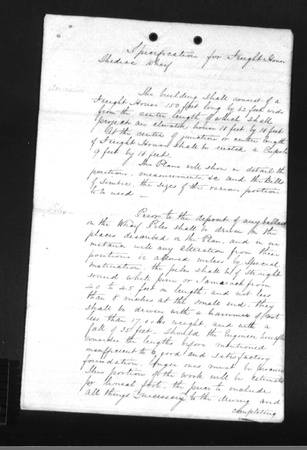 Specification for Freight House
Shediac Wharf
The building shall consist of a
Freight House 150 feet long by 42 feet wide
from the center length of which shall
project an elevated house 18 feet by 18 feet
At the center of junction or center length
of Freight House shall be erected a Cupola
9 feet by 18 feet.
The Plans will show in detail the
positions, measurements, &c and the Bill
of Timber, the sizes of the various portions
to be used
Prior to the deposit of any ballast
in the Wharf Piles shall be driven in the
places described on the Plan, and in no
instance will any alteration from these
positions be allowed unless by special
instruction, the piles shall be of straight
sound white pine, or Tamarack from
40 to 45 feet in length, and not less
than 8 inches at the small end; they
shall be driven with a hammer of not
less than 17 cwt weight, and with a
fall of 25 feet. Should the Engineer
consider the lengths before mentioned
insufficient to good and satisfactory
foundation longer ones must be
This portion of the work will be estimated
per lineal foot, the price to include
all things necessary to the driving and
completing